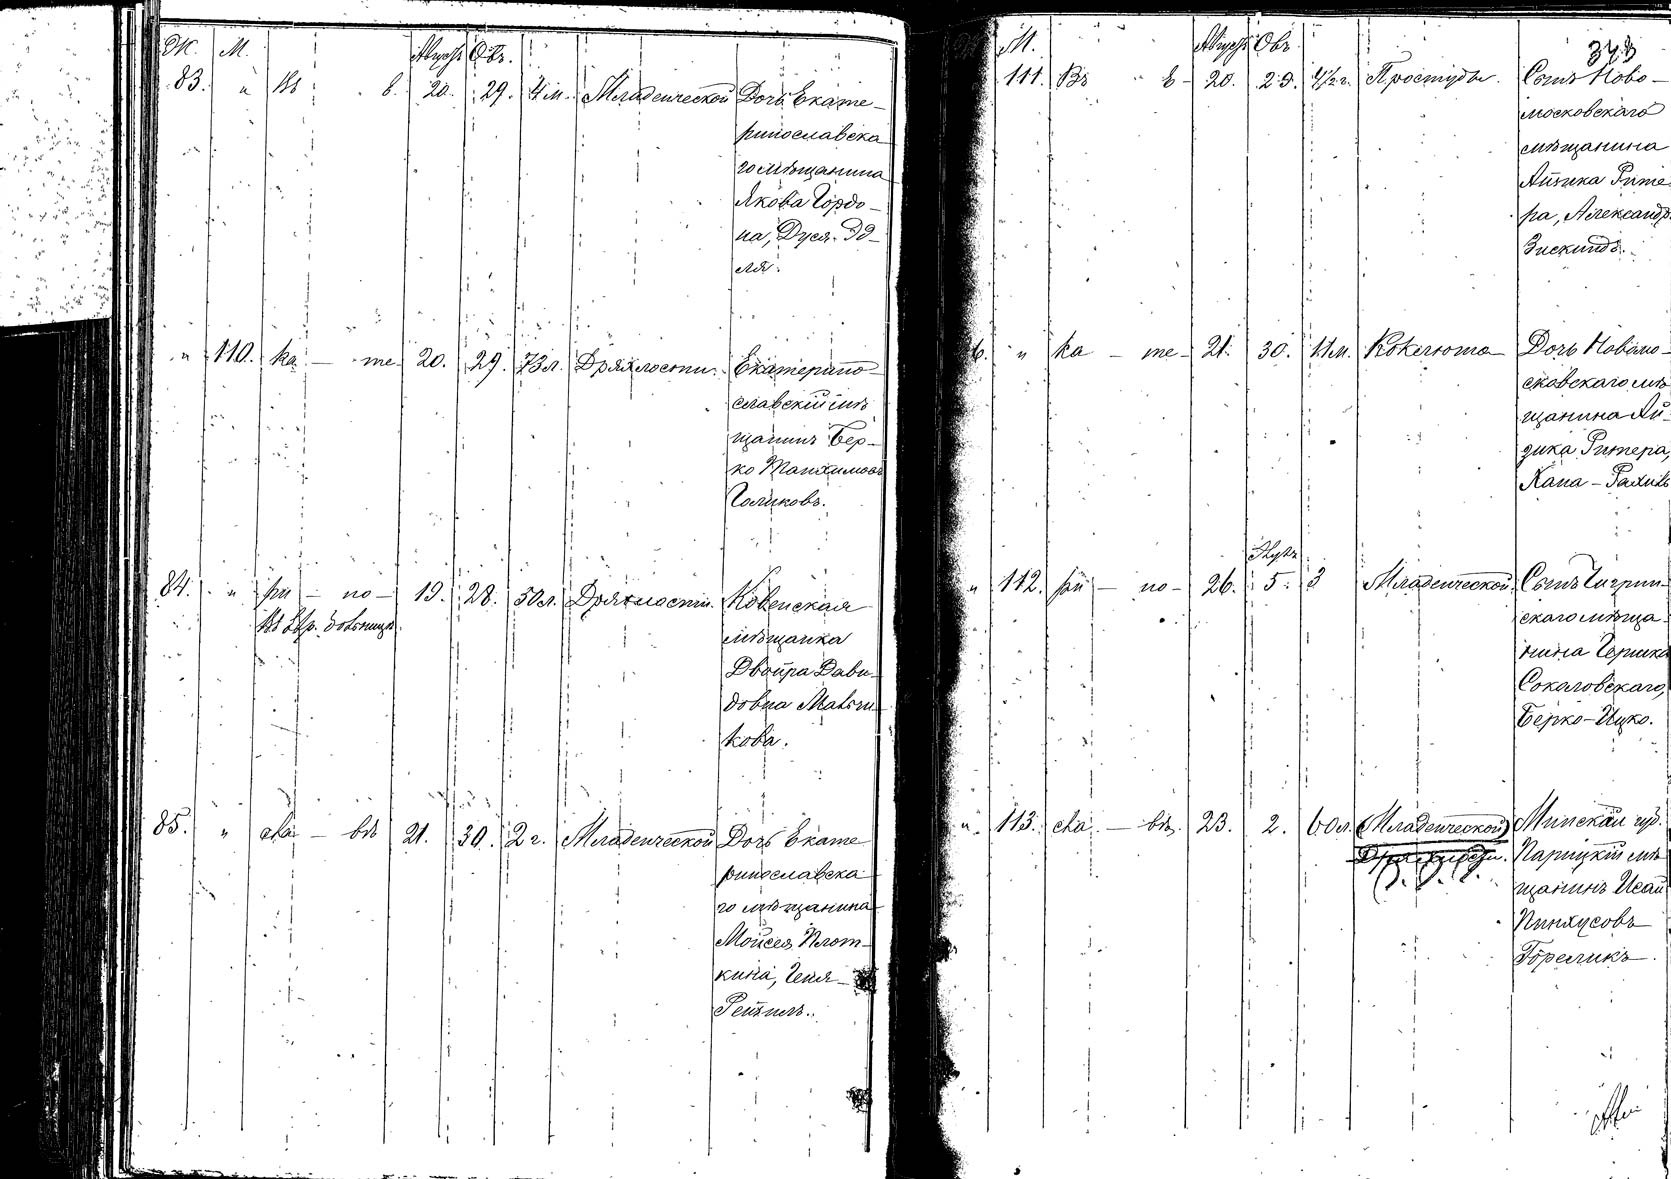 Ж. М. Августъ Овъ.
83. " Въ Е 20. 29. 4 м. Младенческой Дочь Екате-
ринославска
го мѣщанина
Якова Гордо-
на, Дуся-Эд-
ля.
" 110. ка — те- 20. 29. 73 л. Дряхлости. Екатерино-
славскій мѣ
щанинъ Бер-
ко
Голиковъ.
84. " ри — но — 19. 28. 50 л. Дряхлости. Ковенская
Въ Евр. больницѣ. мѣщанка
Двойра Дави-
довна
кова.
85. " сла — вѣ 21. 30. 2 г. Младенческой Дочь Екате
ринославска
го мѣщанина
Мойсея Плот-
кина,
Рейзилъ.
М. Августъ Овъ 373
111. Въ " Е- 20. 29. 4½ г. Простуды. Сынъ Ново-
московскаго
мѣщанина
Айзика Ритте
ра, Александръ
Зискиндъ.
6. " ка — те- 21. 30. 11 м. Коклюша Дочь Новомо-
сковскаго мѣ
щанина Ай-
зика Ритера,
Хана-Рахиль
"  112. ри — но- 26. 5. 3 Младенческой Сынъ Чигрин-
скаго мѣща-
нина Гершка
Сокаловскаго,
Берко-Ицко.
" 113. сла — вѣ. 23. 2. 60 л. (Младенческой) Минской губ.
Дряхлости. Паричскій мѣ
щанинъ Исай
Пинхусовъ
Гореликъ.